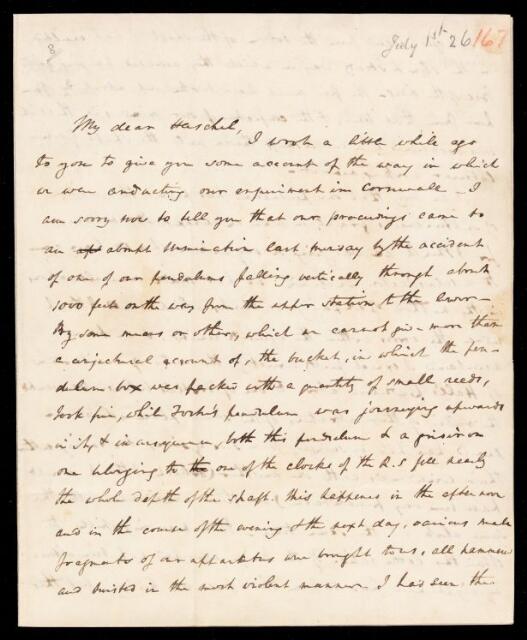 8
July 1st 26 167
My dear Herschel,
I wrote a little while ago
to you to give you some account of the way in which
we were conducting our experiment in Cornwall – I
am sorry now to tell you that our proceedings came to
an abrupt termination last tuesday by the accident
of one of our pendulums falling vertically through about
1000 feet on the way from the upper station to the lower –
By some means or other, which we cannot give more than
a conjectural account of, the bucket, in which the pen-
dulum box was packed with a quantity of small reeds,
took fire, while pendulum was journeying upwards
in it, & in consequence, both this pendulum & a
one belonging to the one of the clocks of the R.S fell nearly
the whole depth of the shaft. this happened in the afternoon
and in the course of the evening & the next day, various
fragments of our apparatus were brought to us, all hammered
and twisted in the most violent manner I had seen the